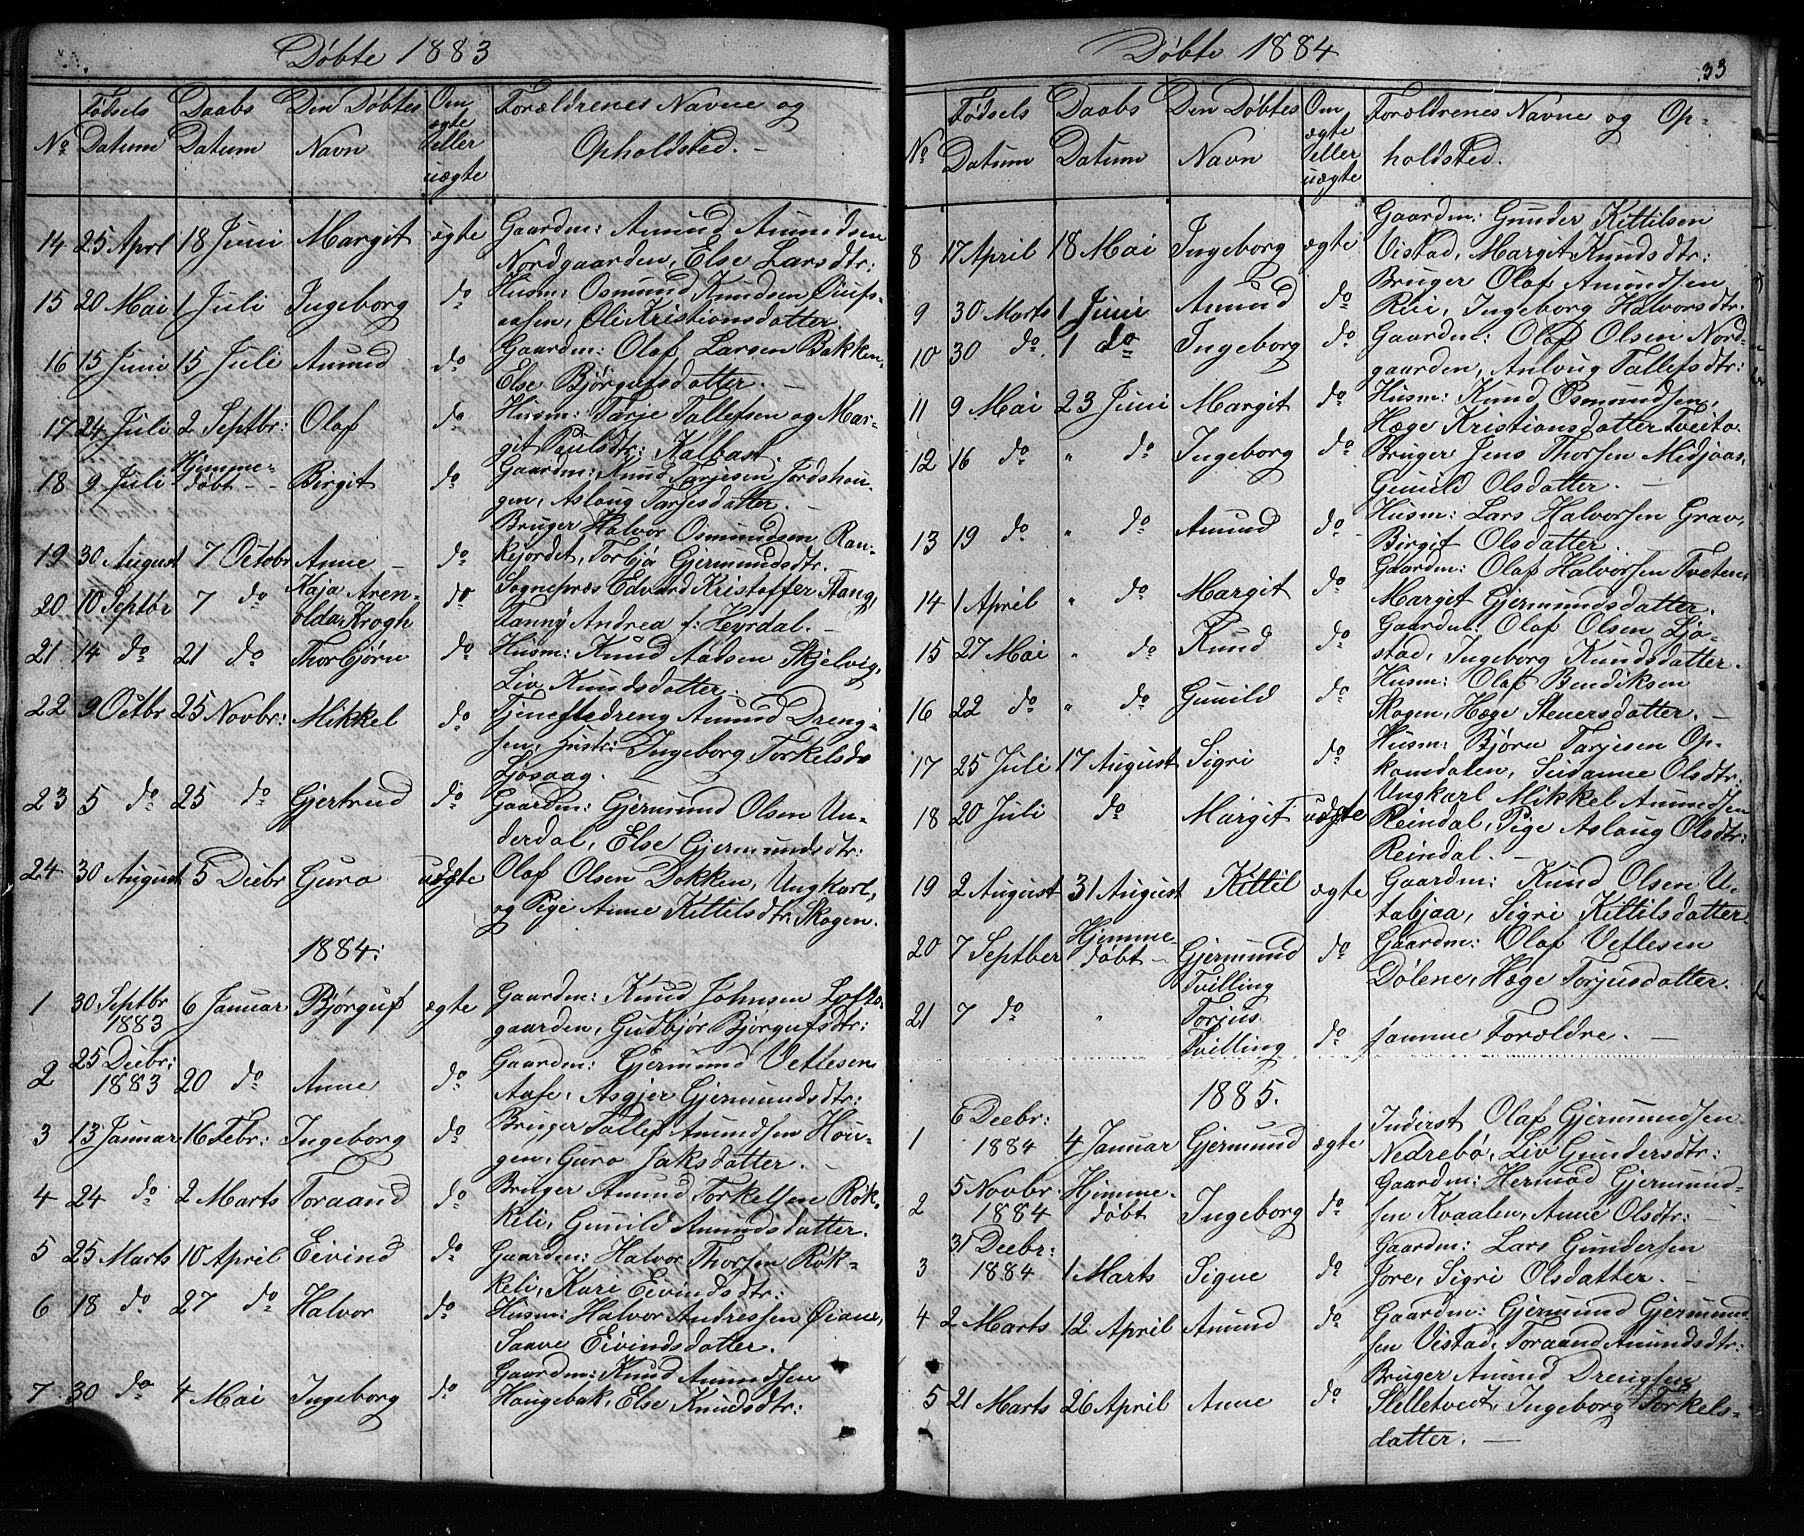 Døbte 1883
No
Fødsels Datum
Daabs Datum
Den Døbtes Navn
Om ægte eller uægte
Forældrenes Navne og Opholdsted. -
14 25 Aprl 18 Juni Margit ægte Gaardm: Amund Amundsen
Nordgaarden, Else Larsdtr:
15 20 Mai 1 Juli Ingeborg do Husm: Osmund Knudsen
aasen, Oli Kristionsdatter.
16 15 Juni 15 Juli Amund do Gaardm: Olaf Larsen Bakken,
Else Bjørgufsdatter. -
17 24 Juli 2 Septbr: Olaf do Husm: Tarje Tallefsen og Mar-
git Paulsdtr: Kalbast.
18 9 Juli Hjemme-
døbt - - Birgit do Gaardm: Knud Tarjesen Jordshou-
gen, Aslaug Tarjesdatter. -
19 30 August 7 Octobr Anne - do Bruger Halvor Osmundsen Ran-
kejordet, Torbjø Gjermundsdtr.
20 10 Septbr 7 do Kaja Aren-
olda Krogh do Sognepræs Edvard Kristoffer Stang,
Fanny Andrea f: Heyrdal. -
21 14 do 21 do Thorbjørn do Husm: Knud Aadsen Skjelvig,
Liv Knudsdatter -
22 9 Octbr 25 Novbr: Mikkel do Tjenestedreng Amund Dreng-
sen, Hustr: Ingeborg Torkelsdr
Ljosaag.
23 5 do 25 do Gjertrud do Gaardm: Gjermund Olsen Un-
derdal, Else Gjermundsdtr:
24 30 August 5 Decbr Guro uægte Olaf Olsen Dokken, Ungkarl,
og Pige Anne Kittilsdtr: Skogen.
1884:
1 30 Septbr
1883 6 Januar Bjørguf ægte Gaardm: Knud Johnsen Lofts-
gaarden, Gudbjør Bjørgufsdtr:
2 25 Decbr:
1883 20 do Anne do Gaardm: Gjermund Vetlesen
Aase, Asgjer Gjermundsdtr:
3 13 Januar 16 Febr: Ingeborg do Bruger Tallef Amundsen Hou-
gen, Guro Jaksdatter. -
4 24 do 2 Marts Toraand do Bruger Amund Torkelsen Røk-
keli, Gunild Amundsdatter.
5 25 Marts 10 April Eivind do Gaardm: Halvor Thorsen Røk-
keli, Kari Eivindsdtr:
6 18 do 27 do Halvor do Husm: Halvor Andressen Øiane,
Saave Eivindsdatter.
7 30 do 4 Mai Ingeborg do Gaardm: Knud Amundsen
Haugebak, Else Knudsdtr:
Døbte 1884
33
No
Fødsels Datum
Daabs Datum
Den Døbtes Navn
Om ægte eller uægte
Forældrenes Navne og Op-
holdsted.
8 17 April 18 Mai Ingeborg ægte Gaardm: Gunder Kittilsen
Vistad, Margit Knudsdtr:
9 30 Marts 1 Juni Amund do Bruger Olaf Amundsen
Rui, Ingeborg Halvorsdtr:
10 30 do 1 do Ingeborg do Gaardm: Olaf Olsen Nord-
gaarden, Anlaug Tallefsdtr:
11 9 Mai 23 Juni Margit do Husm: Knud Osmundsen,
Hæge Kristionsdatter Tveito.
12 16 do " do Ingeborg do Bruger Jens Thorsen Midjaas,
Gunild Olsdatter. -
13 19 do " do Amund do Husm: Lars Halvorsen Grav,
Birgit Olsdatter.
14 1 April " do Margit do Gaardm: Olaf Halvorsen Tveten,
Margit Gjermundsdatter.
15 27 Mai " do Knud do Gaardm: Olaf Olsen Ljø-
stad, Ingeborg Knudsdatter.
16 22 do " do Gunild do Husm: Olaf Bendiksen
Skogen, Hæge Steuersdatter. -
17 25 Juli 17 August Sigri do Husm: Bjørn Tarjesen Op-
komdalen, Susanne Olsdtr:
18 20 Juli do Margit uægte Ungkarl Mikkel Amundsen
Reindal, Pige Aslaug Olsdtr:
Reindal. -
19 2 August 31 August Kittil ægte Gaardm: Knud Olsen U-
tabjaa, Sigri Kittilsdatter
20 7 Septber Hjemme-
døbt - Gjermund
Tvilling do Gaardm: Olaf Vetlesen
Dølene, Hæge Torjusdatter.
21 7 do " Torjus
Tvilling do samme Forældre. -
1885.
1 6 Decbr:
1884 4 Januar Gjermund ægte Inderst Olaf Gjermundsen
Nedrebø, Liv Gundersdtr:
2 5 Novbr
1884 Hjemme-
døbt Ingeborg do Gaardm: Hermod Gjermund-
sen Kvaalen, Anne Olsdtr:
3 31 Decbr:
1884 1 Marts Signe do Gaardm: Lars Gundersen
Jore, Sigri Olsdatter. -
4 2 Marts 12 April Amund do Gaardm: Gjermund Gjermund-
sen Vistad, Toraand Amundsdtr:
5 21 Marts 26 April Anne do Bruger Amund Drengsen
Slettetveit, Ingeborg Torkels-
datter. -